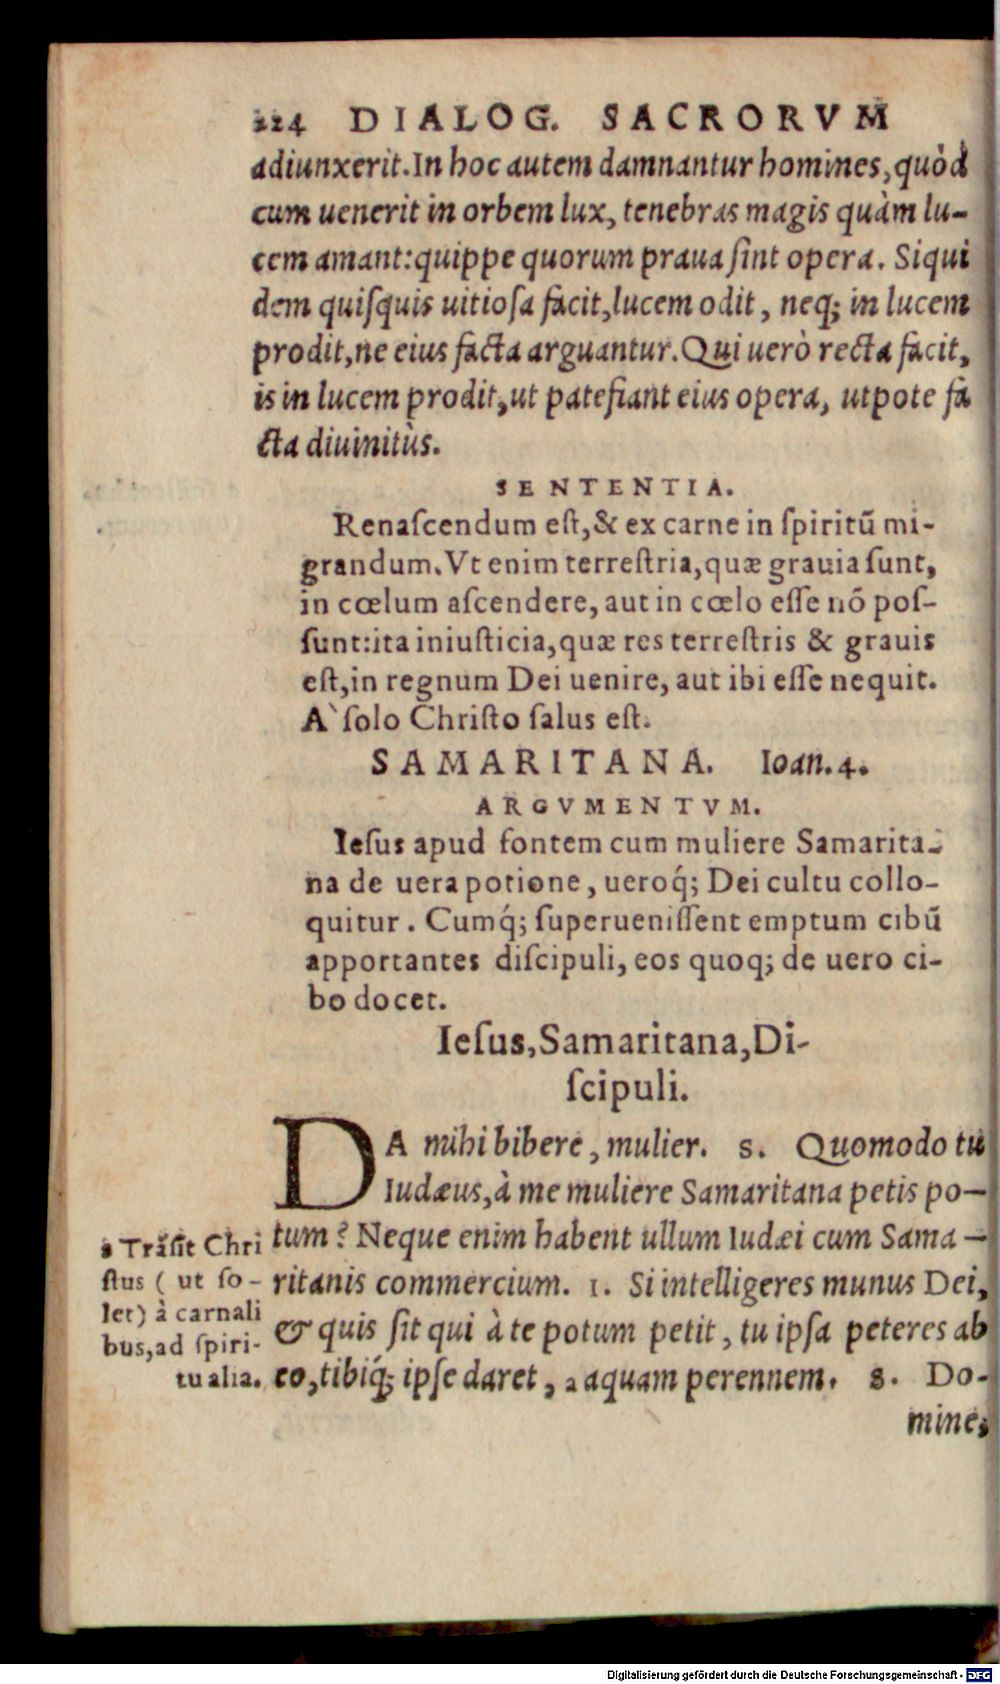 224 DIALOG. SACRORVM
adiunxerit. In hoc autem damnantur homines, quòd
cum uenerit in orbem lux, tenebras magis quàm lu-
cem amant: quippe quorum praua ſint opera. Siqui
dem quiſquis uitioſa facit, lucem odit, neq; in lucem
prodit, ne eius facta arguantur. Qui uerò recta facit,
is in lucem prodit, ut patefiant eius opera, utpote fa
cta diuinitùs.
SENTENTIA.
Renaſcendum eſt, & ex carne in ſpiritũ mi-
grandum. Vt enim terreſtria, quæ grauia ſunt,
in cœlum aſcendere, aut in cœlo eſſe nõ poſ-
ſunt: ita iniuſticia, quæ res terreſtris & grauis
eſt, in regnum Dei uenire, aut ibi eſſe nequit.
A` ſolo Chriſto ſalus eſt.
SAMARITANA. Ioan. 4.
ARGVMENTVM.
Ieſus apud fontem cum muliere Samarita-
na de uera potione, ueroq́; Dei cultu collo-
quitur. Cumq́; ſuperueniſſent emptum cibũ
apportantes diſcipuli, eos quoq; de uero ci-
bo docet.
Ieſus, Samaritana, Di-
ſcipuli.
DA mihi bibere, mulier. S. Quomodo tu
Iudæus, à me muliere Samaritana petis po-
tum? Neque enim habent ullum Iudæi cum Sama-
ritanis commercium. I. Si intelligeres munus Dei,
& quis ſit qui à te potum petit, tu ipſa peteres ab
eo, tibiq́; ipſe daret, a aquam perennem. S. Do-
mine,
a Trãſit Chri
ſtus (ut ſo-
let) à carnali
bus, ad ſpiri-
tualia.
Digitalisierung gefördert durch die Deutsche Forschungsgemeinschaft - DFG